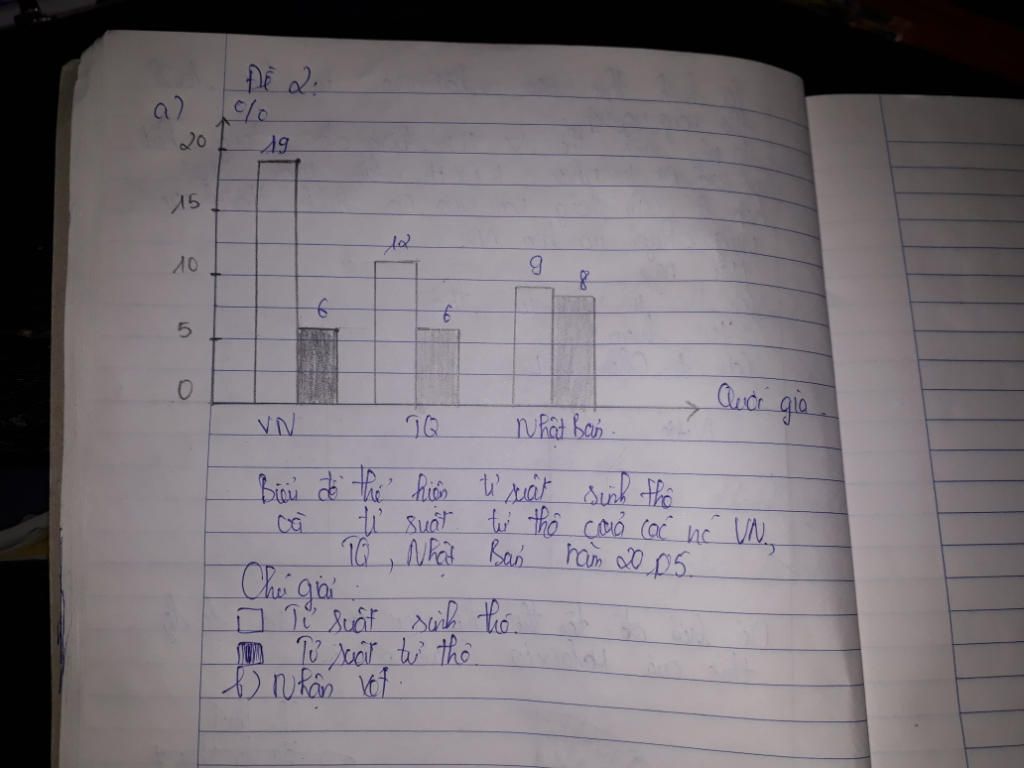 Đề 2:
a) %
20
19
15
12
10
9
8
6
6
5
0
Quốc gia
VN TQ Nhật Bản.
Biểu đồ thể hiện tỉ suất sinh thô
và tỉ suất tử thô của các nc VN,
TQ, Nhật Bản năm 2005.
Chú giải:
Tỉ suất sinh thô.
Tỉ suất tử thô
b) Nhận xét.